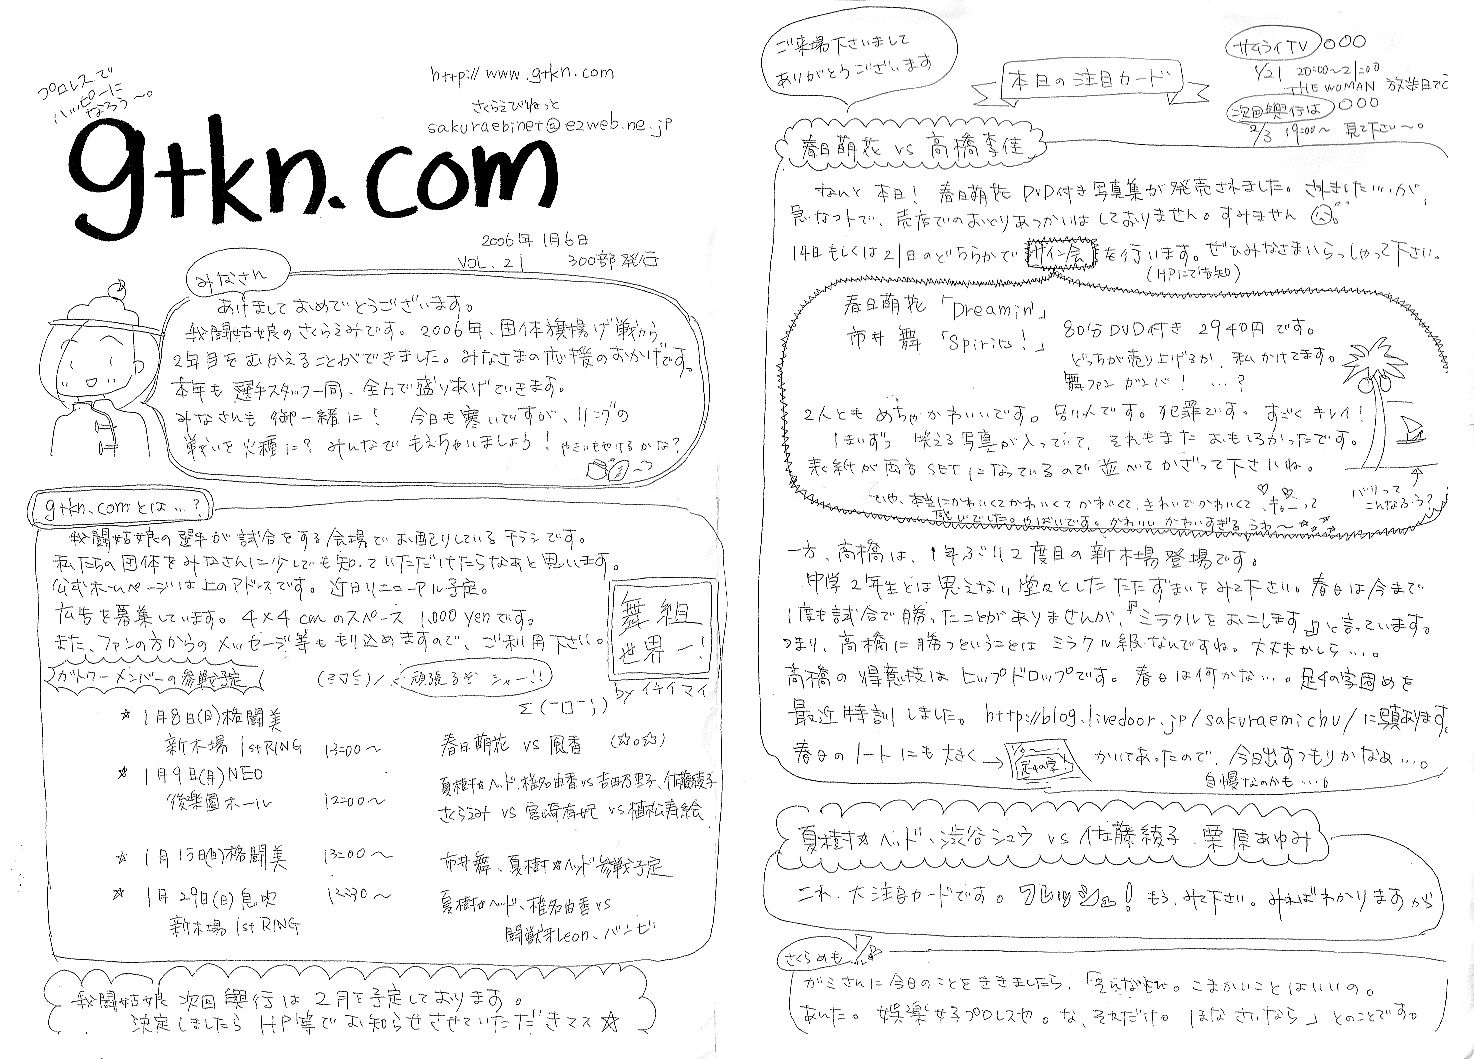 プロレスで
ハッピーに
なろう〜。
http://www.gtkn.com
さくらえびねっと
sakuraebinet@ezweb.ne.jp
gtkn.com
2006年1月6日
VOL.21 300部発行
みなさん
あけましておめでとうございます。
我闘姑娘のさくらえみです。2006年、団体旗揚げ戦から
2年目をむかえることができました。みなさまの応援のおかげです。
本年も選手スタッフ一同、全力で盛りあげていきます。
みなさんも御一緒に! 今日も寒いですが、リングの
戦いを火種に?みんなでもえちゃいましょう! やきいもやけるかな?
gtkn.comとは…?
我闘姑娘の選手が試合をする会場でお配りしているチラシです。
私たちの団体をみなさんに少しでも知っていただけたらなぁと思います。
公式ホームページは上のアドレスです。近日リニューアル予定。
広告を募集しています。4×4cmのスペース 1,000yenです。
また、ファンの方からのメッセージ等も申し込めますので、ご利用下さい。
舞組
世界一!
by イチイマイ
ガトームーメンバーの参戦予定
頑張るぞ シャー!!
☆1月8日(日)格闘美
新木場 1st RING 13:00〜 春日萌花 vs 風香 (☆o☆)
☆1月9日(月)NEO
後楽園ホール 12:00〜
夏樹☆ヘッド、椎名由香 vs 吉田乃里子、佐藤綾子
さくらえみ vs 宮崎有妃 vs 植松寿絵
☆1月15日(日)格闘美 13:00〜 市井舞、夏樹☆ヘッド参戦予定
☆1月29日(日)息吹 12:30〜 夏樹☆ヘッド、椎名由香 vs
新木場 1st RING 闘獣牙Leon、バンビ
我闘姑娘 次回興行は2月を予定しております。
決定しましたらHP等でお知らせさせていただきマス☆
ご来場下さいまして
ありがとうございます
本日の注目カード
サムライTV ○○○
1/21 20:00〜21:00
THE WOMAN 放送日です
次回興行は ○○○
2/3 19:00〜 見て下さい〜。
春日萌花 vs 高橋李佳
なんと本日! 春日萌花DVD付き写真集が発売されました。されました…が、
急なコトで、売店でのおとりあつかいはしておりません。すみません
14日もしくは21日のどちらかでサイン会を行います。ぜひみなさまいらっしゃって下さい。
(HPにて告知)
春日萌花「Dreamin'」
市井 舞「Spirits!」 80分DVD付き 2940円です。
どっちが売り上げるか、私かけてます。
舞ファン ガンバ! …?
2人ともめちゃかわいいです。別人です。犯罪です。すごくキレイ!
1まいずつ 笑える写真が入っていて、それもまたおもしろかったです。
表紙が両方SETになっているので並べてかざって下さいね。
でも、本当にかわいくてかわいくてかわいくて、きれいでかわいくて
感じでした。やばいです。かわいい かわいすぎる うわ〜
バリって
こんなるう?
一方、高橋は、1年ぶり2度目の新木場登場です。
中学2年生とは思えない堂々としたたたずまいをみて下さい。春日は今まで
1度も試合で勝ったことがありませんが、『ミラクルをおこします』と言っています。
つまり、高橋に勝つということはミラクル級なんですね。大丈夫かしら…。
高橋の得意技はヒップドロップです。春日は何かな…。足4の字固めを
最近特訓しました。http://blog.livedoor.jp/sakuraemichu/に写真あります。
春日のノートにも大きく→足4の字! かいてあったので、今日出すつもりかなぁ…。
自慢なのかも…。
夏樹☆ヘッド、渋谷シュウ vs 佐藤綾子、栗原あゆみ
これ、大注目カードです。! もう、みて下さい。みればわかりますから
さくらめも
ガミさんに今日のことをききましたら、「そんなもん。こまかいことはいいの。
あんた。娯楽女子プロレスや。な、それだけ。ほな さいなら」とのことです。